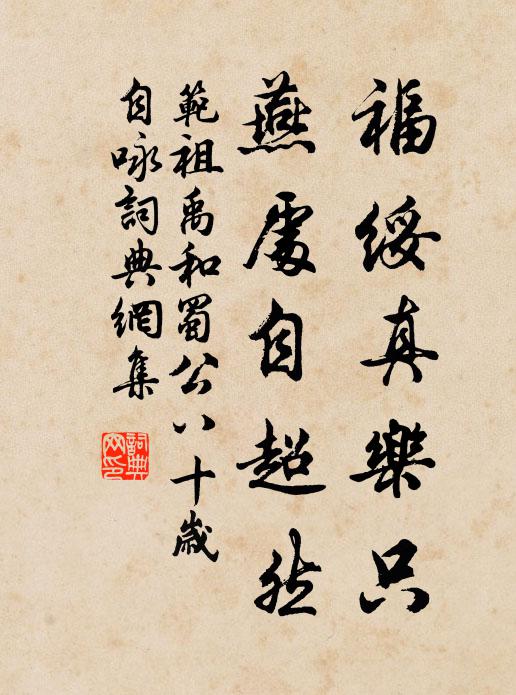 福綏真樂只
燕處自超然
範祖禹和蜀公八十歲
自咏詞典網集
詞典網印